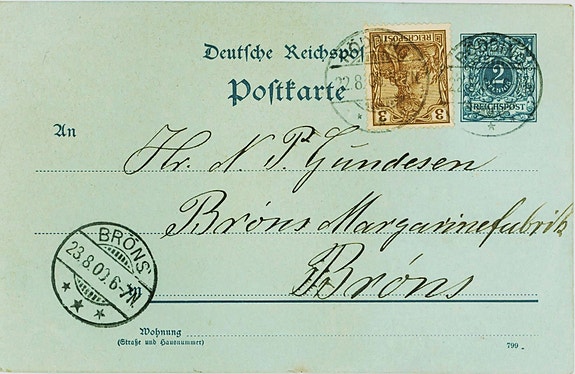 Deutsche Reichspost
Postkarte
REICHSPOST
3 3
2
REICHSPOST
22.8.
An
Hr. N P. Gundesen
Bröns Margarinefabrik
Bröns
BRÖNS
23.8.00.6-7N.
Wohnung
(Straße und Hausnummer)
799